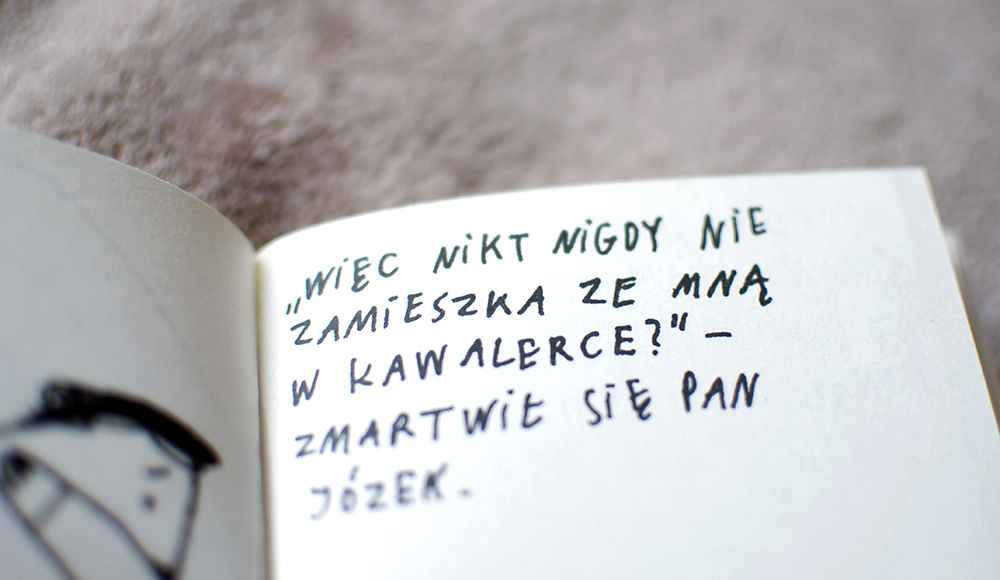 „WIĘC NIKT NIGDY NIE
ZAMIESZKA ZE MNĄ
W KAWALERCE?" –
ZMARTWIŁ SIĘ PAN
JÓZEK.